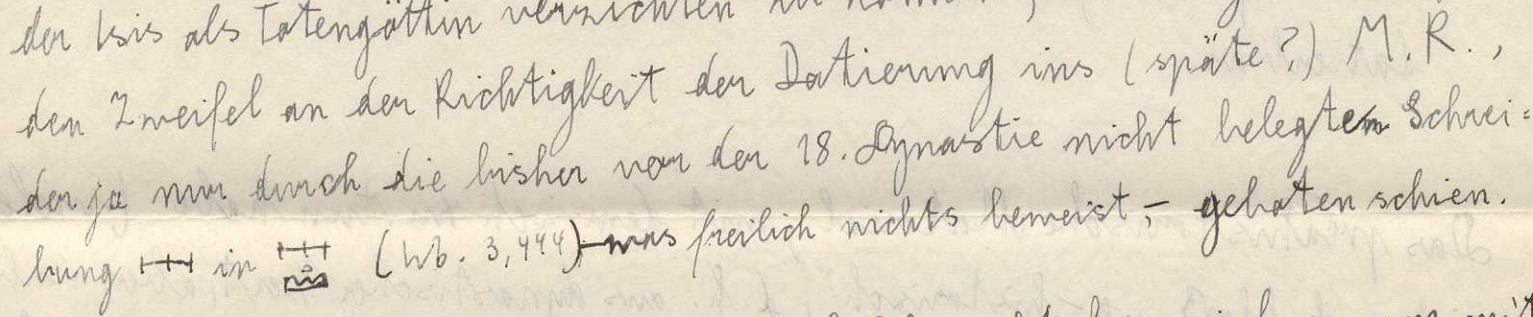 der Isis als Totengöttin verzichten zu können,
den Zweifel an der Richtigkeit der Datierung ins (späte?) M.R.,
der ja nur durch die bisher vor der 18. Dynastie nicht belegten Schrei=
bung 𓊃 in 𓊃 (Wb. 3,444) – was freilich nichts beweist, – geboten schien.